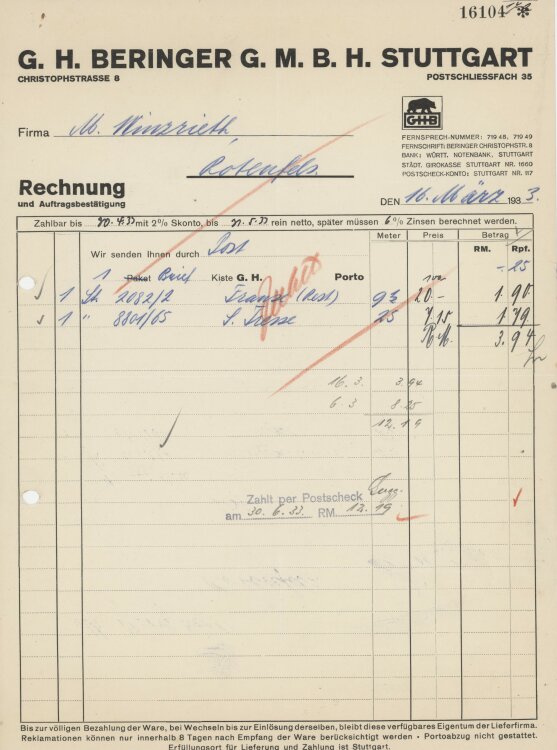 16104 *
G. H. BERINGER G. M. B. H. STUTTGART
CHRISTOPHSTRASSE 8 POSTSCHLIESSFACH 35
G·H·B
Firma M. Winzrieth,
Rotenfels
FERNSPRECH-NUMMER: 719 48, 719 49
FERNSCHRIFT: BERINGER CHRISTOPHSTR. 8
BANK: WÜRTT. NOTENBANK, STUTTGART
STÄDT. GIROKASSE STUTTGART NR. 1660
POSTSCHECK-KONTO: STUTTGART NR. 117
Rechnung
und Auftragsbestätigung
DEN 16. März 1933.
Zahlbar bis 30.4.33 mit 2% Skonto, bis 31.5.33 rein netto, später müssen 6% Zinsen berechnet werden.
Meter Preis Betrag
RM. Rpf.
Wir senden Ihnen durch Post
-.25
1 Paket Brief Kiste G. H. Porto
1 St. 2082/2 Franse (Rest) 9½ 20.- 1.90
1 " 8801/65 S. Tresse 25 7.15 1.79
R.M. 3.94
16.3. 3.94
6.3 8.25
12.19
Zahlt per Postscheck
am 30.6.33. RM. 12.19
Bis zur völligen Bezahlung der Ware, bei Wechseln bis zur Einlösung derselben, bleibt diese verfügbares Eigentum der Lieferfirma.
Reklamationen können nur innerhalb 8 Tagen nach Empfang der Ware berücksichtigt werden · Portoabzug nicht gestattet.
Erfüllungsort für Lieferung und Zahlung ist Stuttgart.